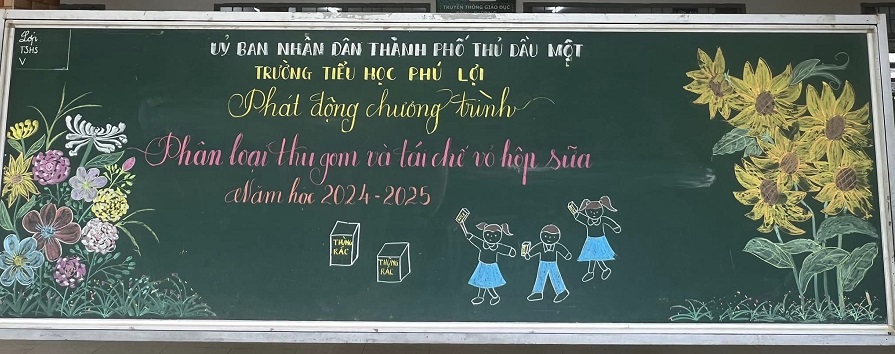 TRUYỀN THỐNG GIÁO DỤC
Lớp
TSHS
V
UỶ BAN NHÂN DÂN THÀNH PHỐ THỦ DẦU MỘT
TRƯỜNG TIỂU HỌC PHÚ LỢI
Phát động chương trình
Phân loại thu gom và tái chế vỏ hộp sữa
Năm học 2024-2025
THÙNG
RÁC
THÙNG
RÁC